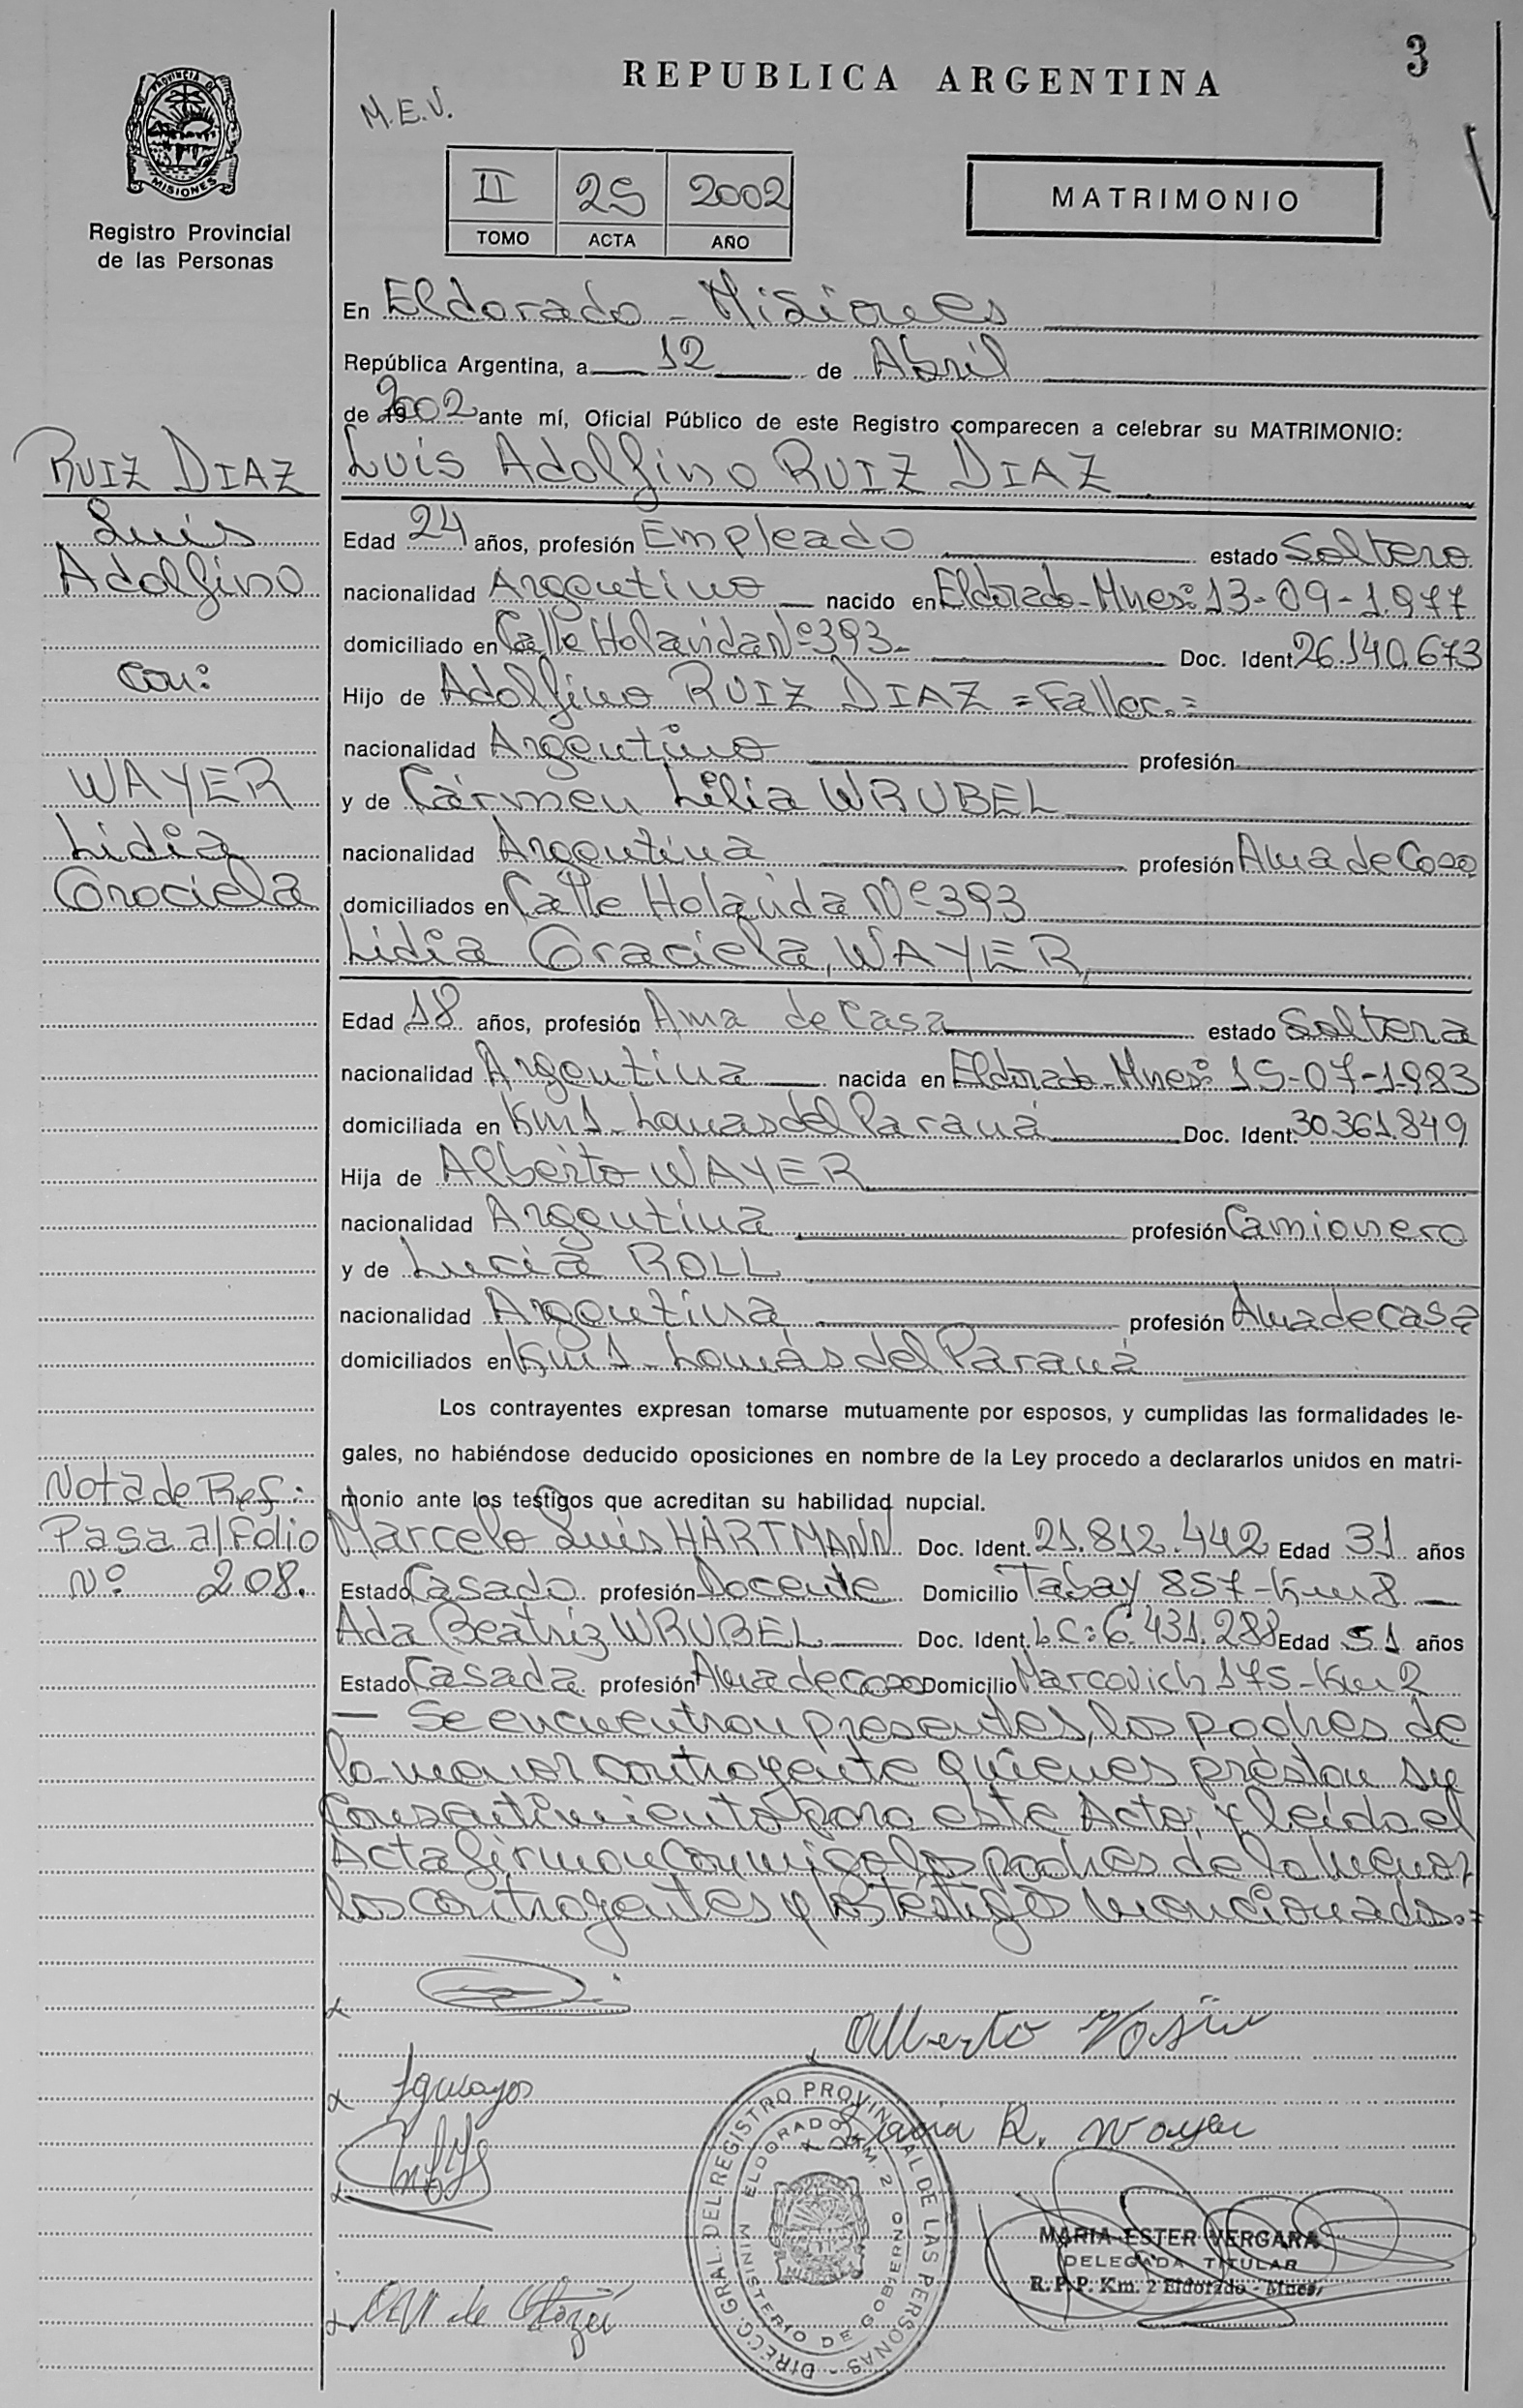 3
REPUBLICA ARGENTINA
M.E.V.
PROVINCIA D
MISIONES
Registro Provincial
de las Personas
II 25 2002
TOMO ACTA AÑO
MATRIMONIO
En Eldorado - Misiones
República Argentina, a 12 de Abril
de 2002 ante mí, Oficial Público de este Registro comparecen a celebrar su MATRIMONIO:
RUIZ DIAZ
Luis
Adolfino
Con:
WAYER
Lidia
Graciela
Luis Adolfino RUIZ DIAZ
Edad 24 años, profesión Empleado estado Soltero
nacionalidad Argentino nacido en Eldorado-Mnes: 13-09-1.977
domiciliado en Calle Holanda Nº 393- Doc. Ident. 26.140.673
Hijo de Adolfino RUIZ DIAZ =Fallec.=
nacionalidad Argentino profesión
y de Cármen Lilia WRUBEL
nacionalidad Argentina profesión Ama de Casa
domiciliados en Calle Holanda Nº 393
Lidia Graciela, WAYER,
Edad 18 años, profesión Ama de Casa estado Soltera
nacionalidad Argentina nacida en Eldorado-Mnes: 15-07-1.983
domiciliada en Km 1 - Lomas del Paraná Doc. Ident. 30.361.849
Hija de Alberto WAYER
nacionalidad Argentina profesión Camionero
y de Lucia ROLL
nacionalidad Argentina profesión Ama de casa
domiciliados en Km 1 - Lomas del Paraná
Los contrayentes expresan tomarse mutuamente por esposos, y cumplidas las formalidades le-
gales, no habiéndose deducido oposiciones en nombre de la Ley procedo a declararlos unidos en matri-
monio ante los testigos que acreditan su habilidad nupcial.
Nota de Ref:
Pasa al Folio
Nº 208.
Marcelo Luis HARTMANN Doc. Ident. 21.812.442 Edad 31 años
Estado Casado profesión Docente Domicilio Tabay 857-Km 8
Ada Beatriz WRUBEL Doc. Ident. LC: 6.431.288 Edad 51 años
Estado Casada profesión Ama de Casa Domicilio Marcovich 175-Km 2
— Se encuentran presentes, los padres de
la menor contrayente quienes prestan su
Consentimiento para este Acto, y leída el
Acta firman conmigo los padres de la menor
los contrayentes y los testigos mencionados.=
x
Alberto
x
x R. Wayer
x
DIRECC. GRAL. DEL REGISTRO PROVINCIAL DE LAS PERSONAS
ELDORADO KM. 2
MINISTERIO DE GOBIERNO
MARIA ESTER VERGARA
DELEGADA TITULAR
R.P.P. Km. 2 Eldorado - Mnes.
x